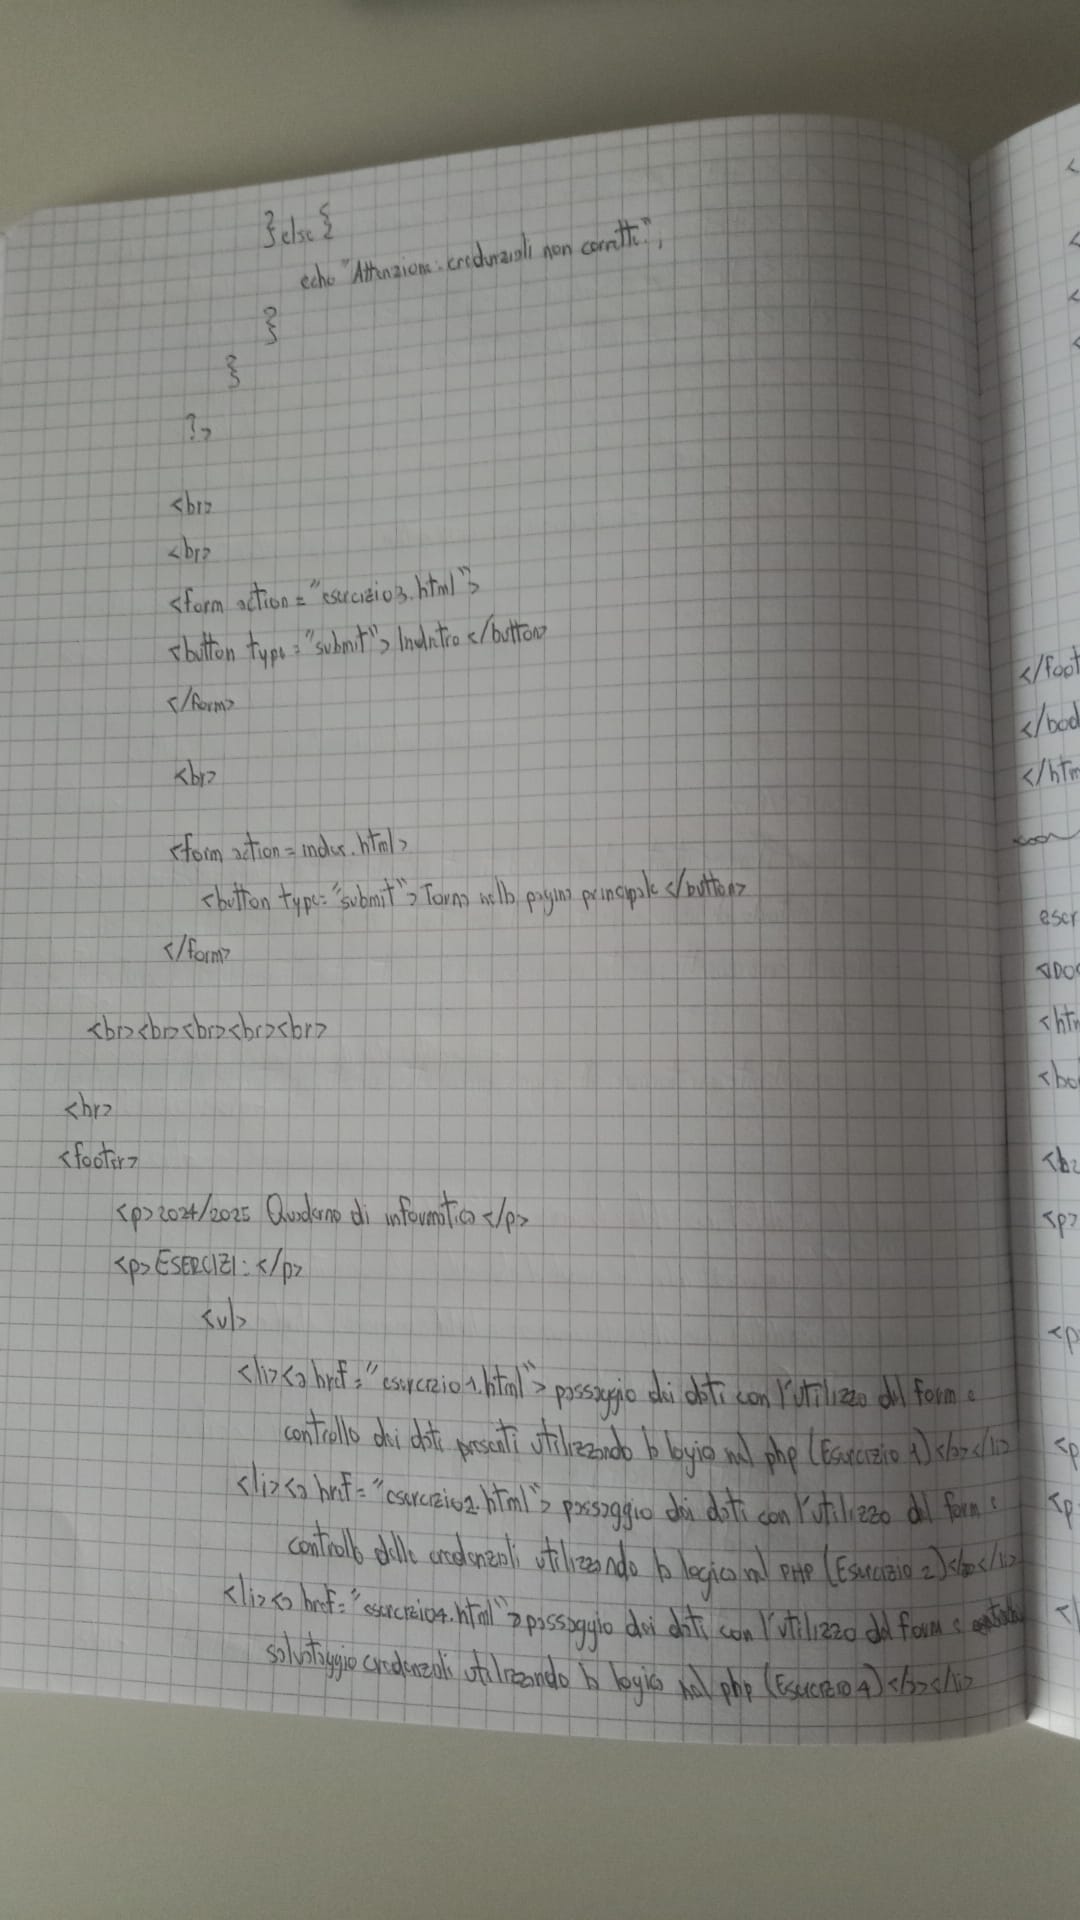 }else{
echo "Attenzione: credenziali non corrette";
}
}
?>
<br>
<br>
<form action="esercizio3.html">
<button type="submit">Indietro</button>
</form>
<br>
<form action=index.html>
<button type="submit">Torna nella pagina principale</button>
</form>
<br><br><br><br><br>
<hr>
<footer>
<p>2024/2025 Quaderno di informatica</p>
<p>ESERCIZI:</p>
<ul>
<li><a href="esercizio1.html">passaggio dei dati con l'utilizzo del form e
controllo dei dati presenti utilizzando la logica nel php (Esercizio 1)</a></li>
<li><a href="esercizio2.html">passaggio dei dati con l'utilizzo del form e
controllo delle credenziali utilizzando la logica nel PHP (Esercizio 2)</a></li>
<li><a href="esercizio4.html">passaggio dei dati con l'utilizzo del form e
salvataggio credenziali utilizzando la logica nel php (Esercizio 4)</a></li>
</foot
</bod
</htm
escr
<DOC
<htm
<bo
<p>
<p
<p
<p